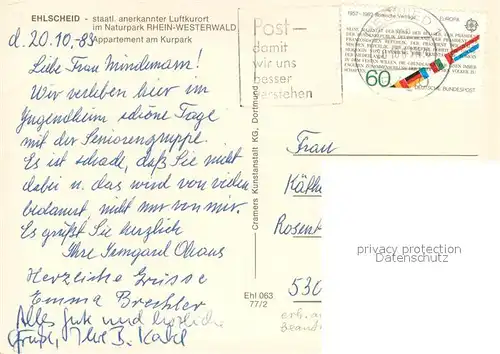 EHLSCHEID - staatl. anerkannter Luftkurort
im Naturpark RHEIN-WESTERWALD
Appartement am Kurpark
d. 20.10.-83
Liebe Frau Mindemann!
Wir verleben hier im
Jugendheim schöne Tage
mit der Seniorengruppe.
Es ist schade, daß Sie nicht
dabei u. das wird von vielen
bedauert nicht nur von mir.
Es grüßt Sie herzlich
Ihre Irmgard
Herzliche Grüsse
Emma Brechler
Alles Gute und herzliche
Grüße, B.
Post -
damit
wir uns
besser
verstehen
1957-1982 Römische Verträge EUROPA
60
DEUTSCHE BUNDESPOST
Cramers Kunstanstalt KG, Dortmund
Ehl 063
77/2
Frau
Käthe
Rosent
530
privacy protection
Datenschutz